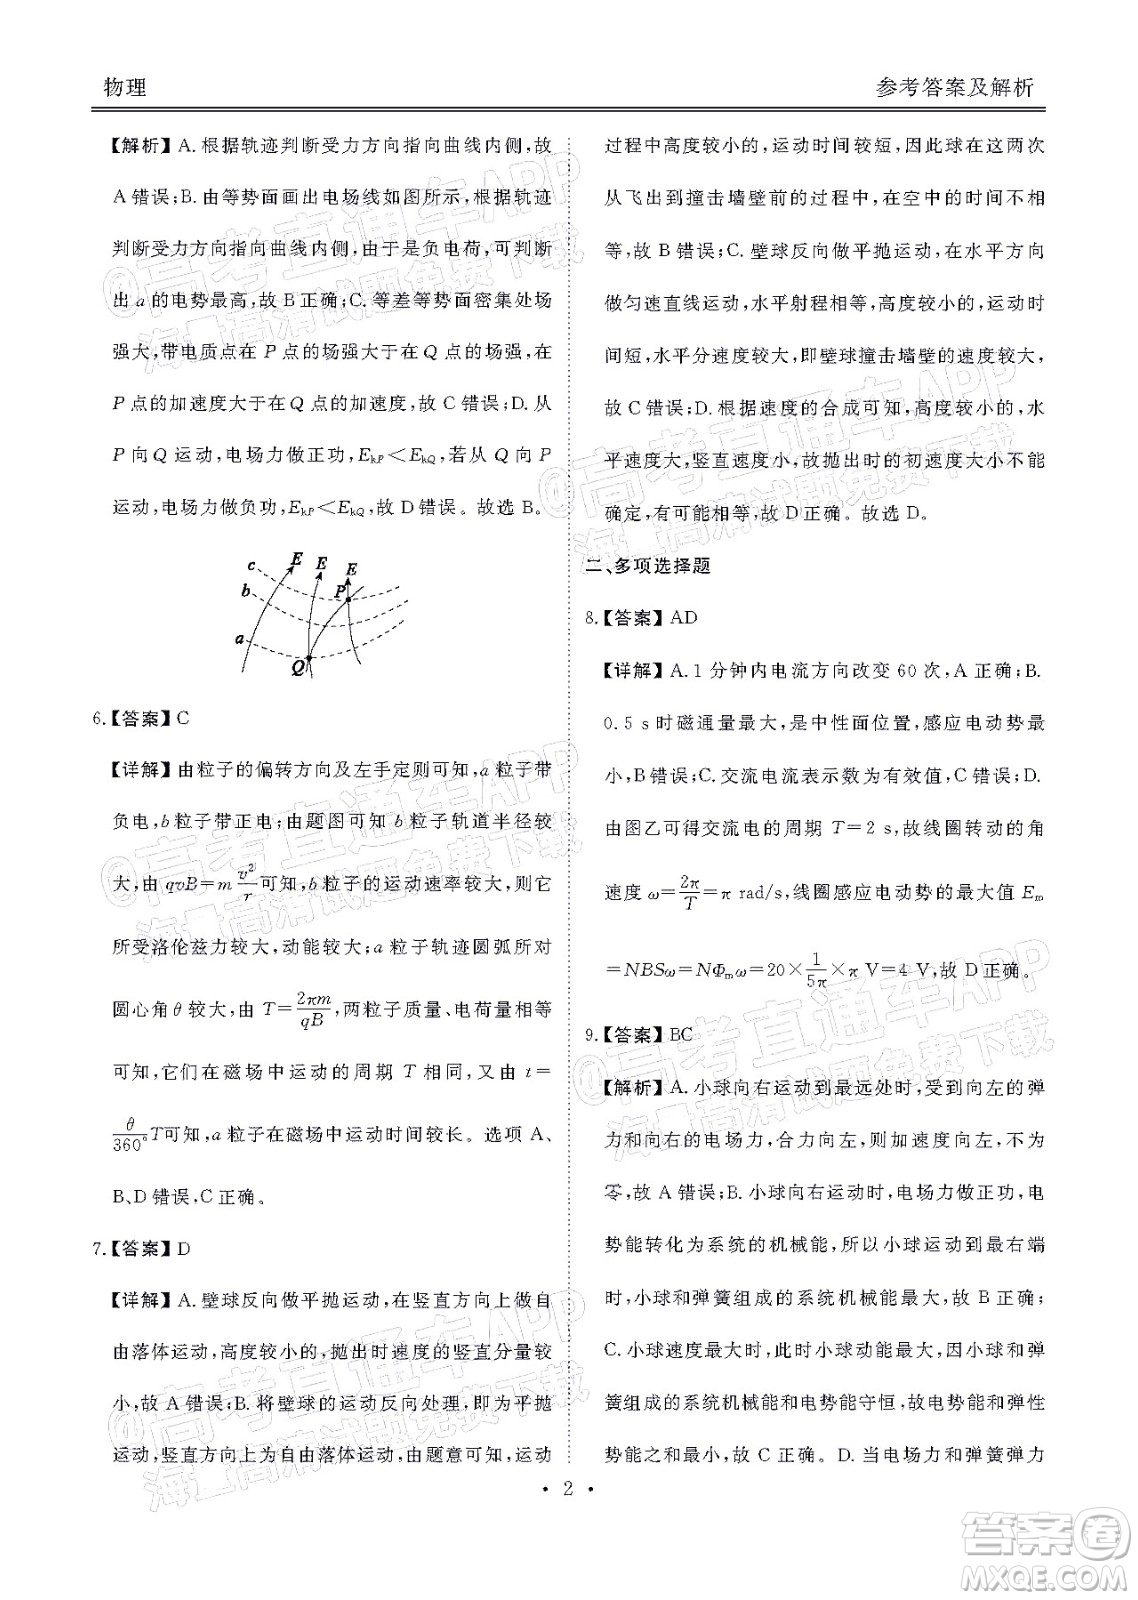 物理
参考答案及解析
【解析】A.根据轨迹判断受力方向指向曲线内侧,故
A错误;B.由等势面画出电场线如图所示,根据轨迹
判断受力方向指向曲线内侧,由于是负电荷,可判断
出a的电势最高,故B正确;C.等差等势面密集处场
强大,带电质点在P点的场强大于在Q点的场强,在
P点的加速度大于在Q点的加速度,故C错误;D.从
P向Q运动,电场力做正功,EkP<EkQ,若从Q向P
运动,电场力做负功,EkP<EkQ,故D错误。故选B。
E E E
c
b
a
P
Q
6.【答案】C
【详解】由粒子的偏转方向及左手定则可知,a粒子带
负电,b粒子带正电;由题图可知b粒子轨道半径较
大,由qvB=m v²/r 可知,b粒子的运动速率较大,则它
所受洛伦兹力较大,动能较大;a粒子轨迹圆弧所对
圆心角θ较大,由T=2πm/qB,两粒子质量、电荷量相等
可知,它们在磁场中运动的周期T相同,又由t=
θ/360° T可知,a粒子在磁场中运动时间较长。选项A、
B、D错误,C正确。
7.【答案】D
【详解】A.壁球反向做平抛运动,在竖直方向上做自
由落体运动,高度较小的,抛出时速度的竖直分量较
小,故A错误;B.将壁球的运动反向处理,即为平抛
运动,竖直方向上为自由落体运动,由题意可知,运动
过程中高度较小的,运动时间较短,因此球在这两次
从飞出到撞击墙壁前的过程中,在空中的时间不相
等,故B错误;C.壁球反向做平抛运动,在水平方向
做匀速直线运动,水平射程相等,高度较小的,运动时
间短,水平分速度较大,即壁球撞击墙壁的速度较大,
故C错误;D.根据速度的合成可知,高度较小的,水
平速度大,竖直速度小,故抛出时的初速度大小不能
确定,有可能相等,故D正确。故选D。
二、多项选择题
8.【答案】AD
【详解】A.1分钟内电流方向改变60次,A正确;B.
0.5 s时磁通量最大,是中性面位置,感应电动势最
小,B错误;C.交流电流表示数为有效值,C错误;D.
由图乙可得交流电的周期T=2 s,故线圈转动的角
速度ω=2π/T=π rad/s,线圈感应电动势的最大值Em
=NBSω=NΦmω=20×1/5π×π V=4 V,故D正确。
9.【答案】BC
【解析】A.小球向右运动到最远处时,受到向左的弹
力和向右的电场力,合力向左,则加速度向左,不为
零,故A错误;B.小球向右运动时,电场力做正功,电
势能转化为系统的机械能,所以小球运动到最右端
时,小球和弹簧组成的系统机械能最大,故B正确;
C.小球速度最大时,小球的动能最大,由于小球和弹
簧组成的系统机械能和电势能守恒,故电势能和弹性
势能之和最小,故C正确。D.当电场力和弹簧弹力
• 2 •
@高考直通车APP
海量高清试题免费下载
@高考直通车APP
海量高清试题免费下载
@高考直通车APP
海量高清试题免费下载
@高考直通车APP
海量高清试题免费下载
@高考直通车APP
海量高清试题免费下载
答案卷
MXQE.COM